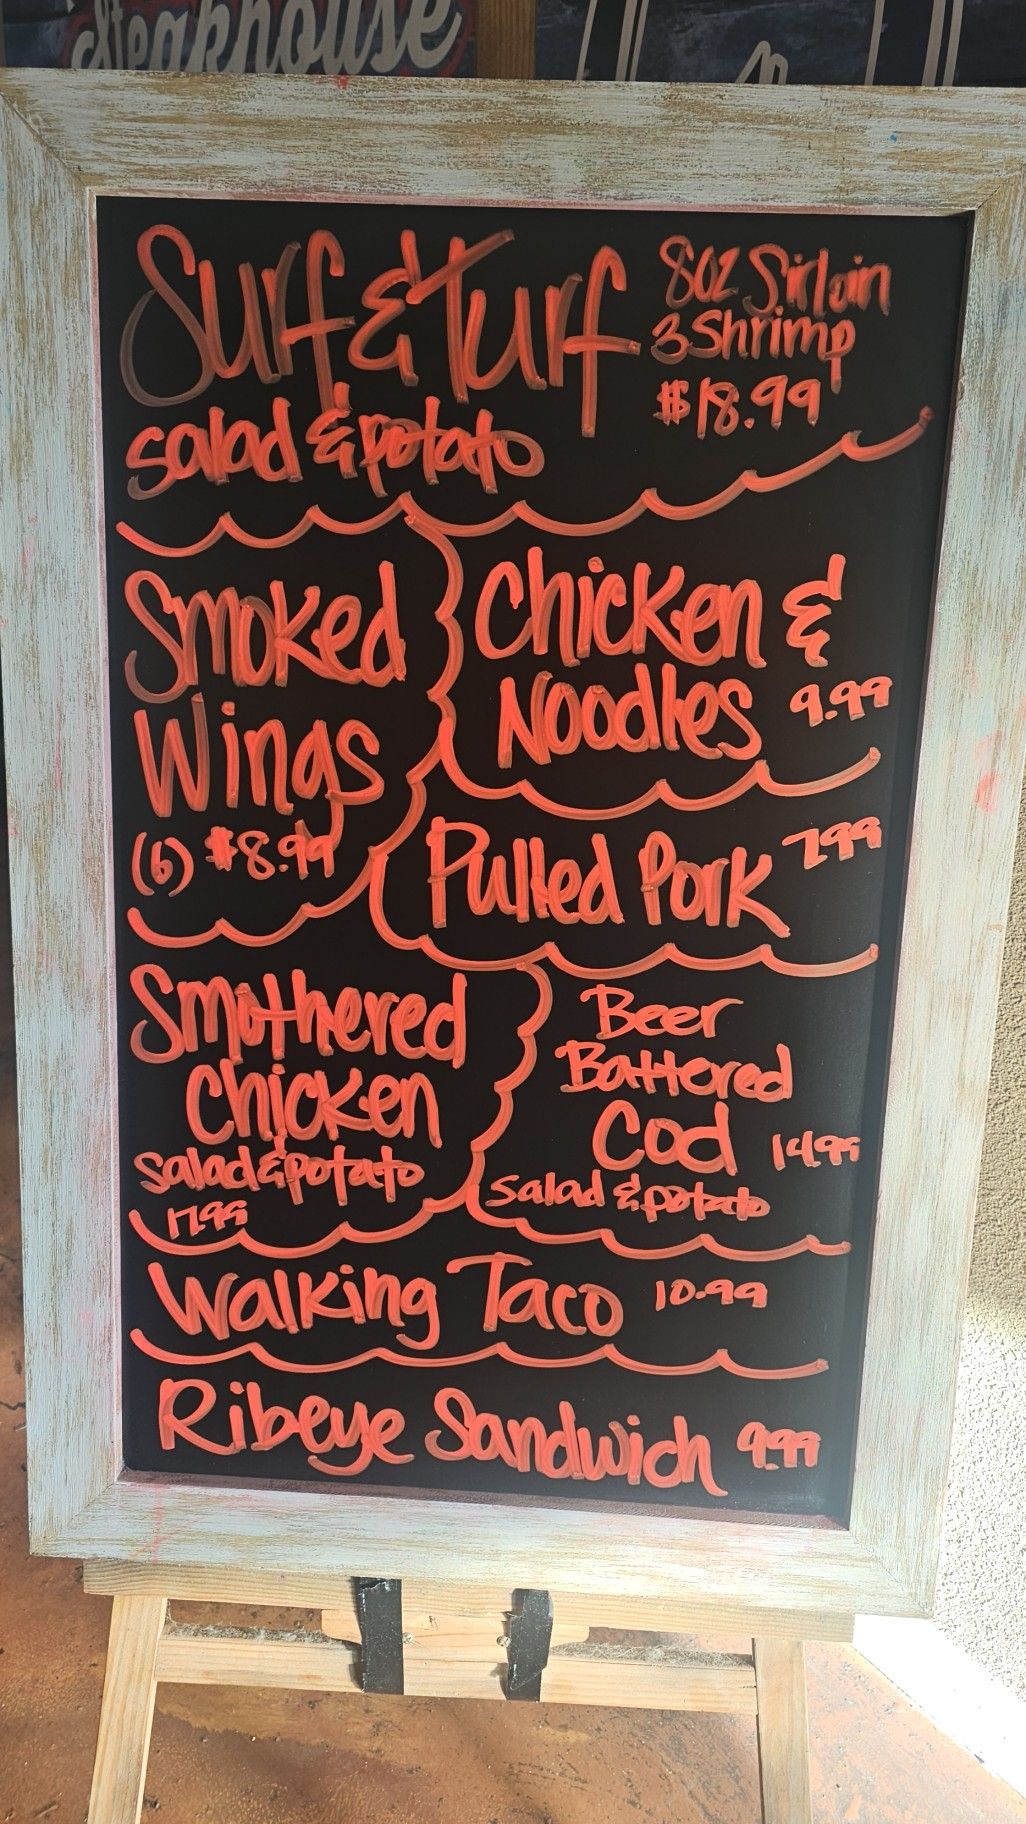 Steakhouse
Surf & Turf
8oz Sirloin
3 Shrimp
$18.99
salad & potato
Smoked
Wings
(6) $8.99
Chicken &
Noodles 9.99
Pulled Pork 7.99
Smothered
Chicken
salad & potato
17.99
Beer
Battered
Cod 14.99
salad & potato
Walking Taco 10.99
Ribeye Sandwich 9.99